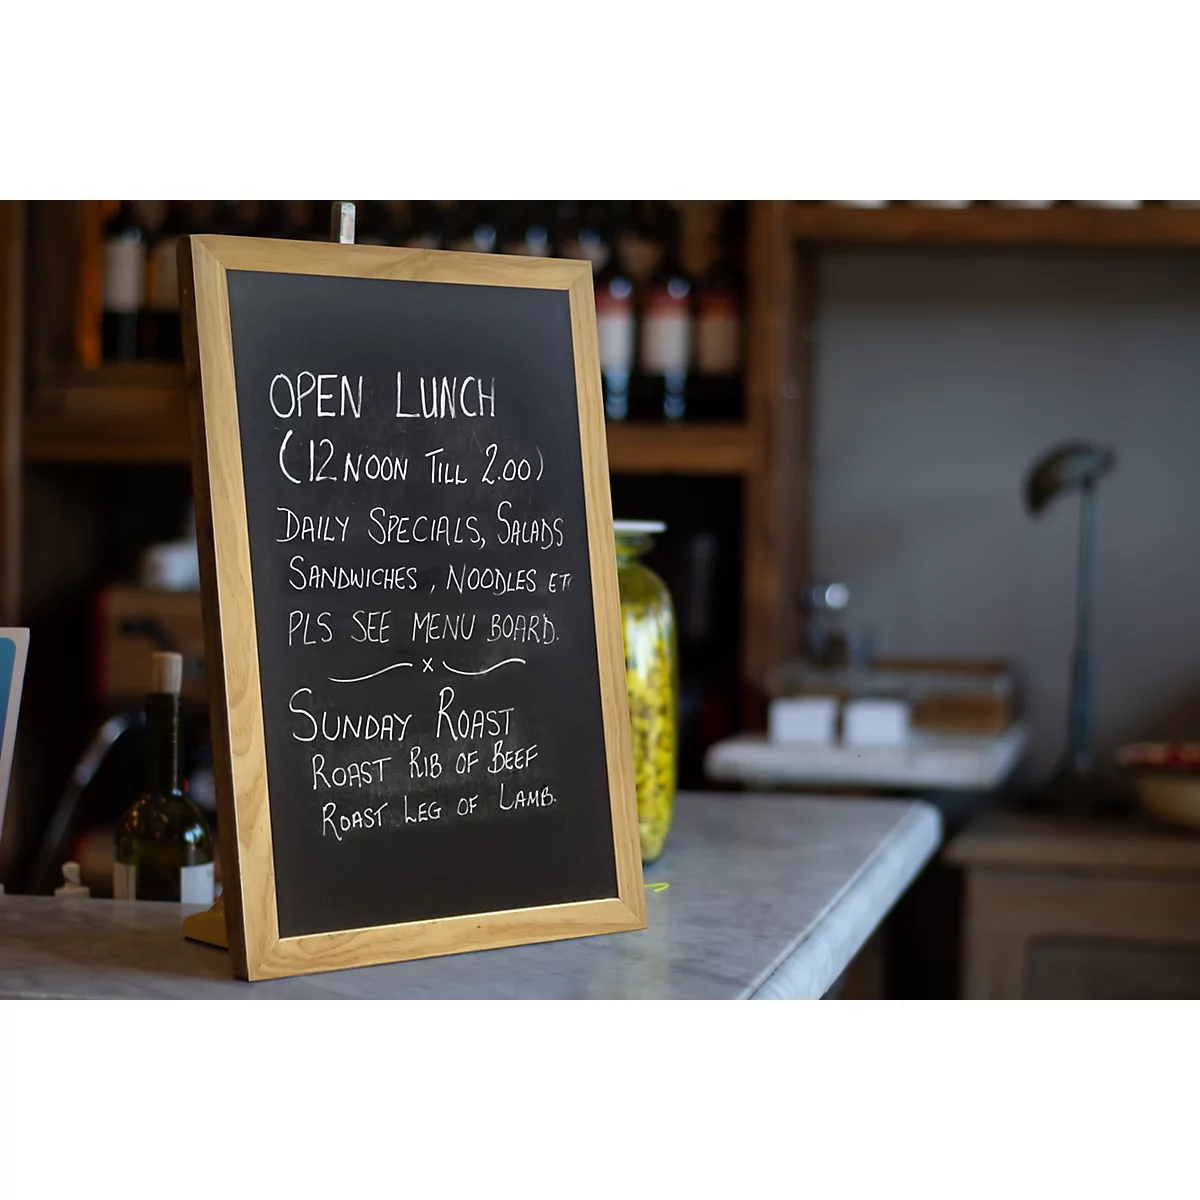 OPEN LUNCH
(12 NOON TILL 2.00)
DAILY SPECIALS, SALADS
SANDWICHES, NOODLES ETC
PLS SEE MENU BOARD.
x
SUNDAY ROAST
ROAST RIB OF BEEF
ROAST LEG OF LAMB.